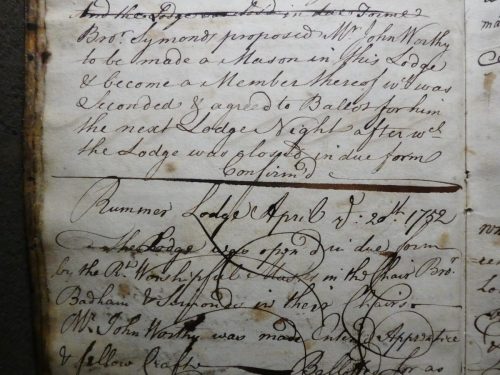 And the Lodge was clos'd in due Form
Bro.r Symonds proposed Mr. John Worthy
to be made a Mason in this Lodge
& become a Member thereof wch was
Seconded & agreed to Ballot for him
the next Lodge Night after wch
the Lodge was closed in due form
Confirm'd
Rummer Lodge April ye: 20th. 1752
The Lodge was open'd in due form
by the Rt. Worshipful Master in the Chair Bro.r
Badham & in their Chairs
Mr. John Worthy was made Enter'd Apprentice
& fellow Craft Ballotted for as